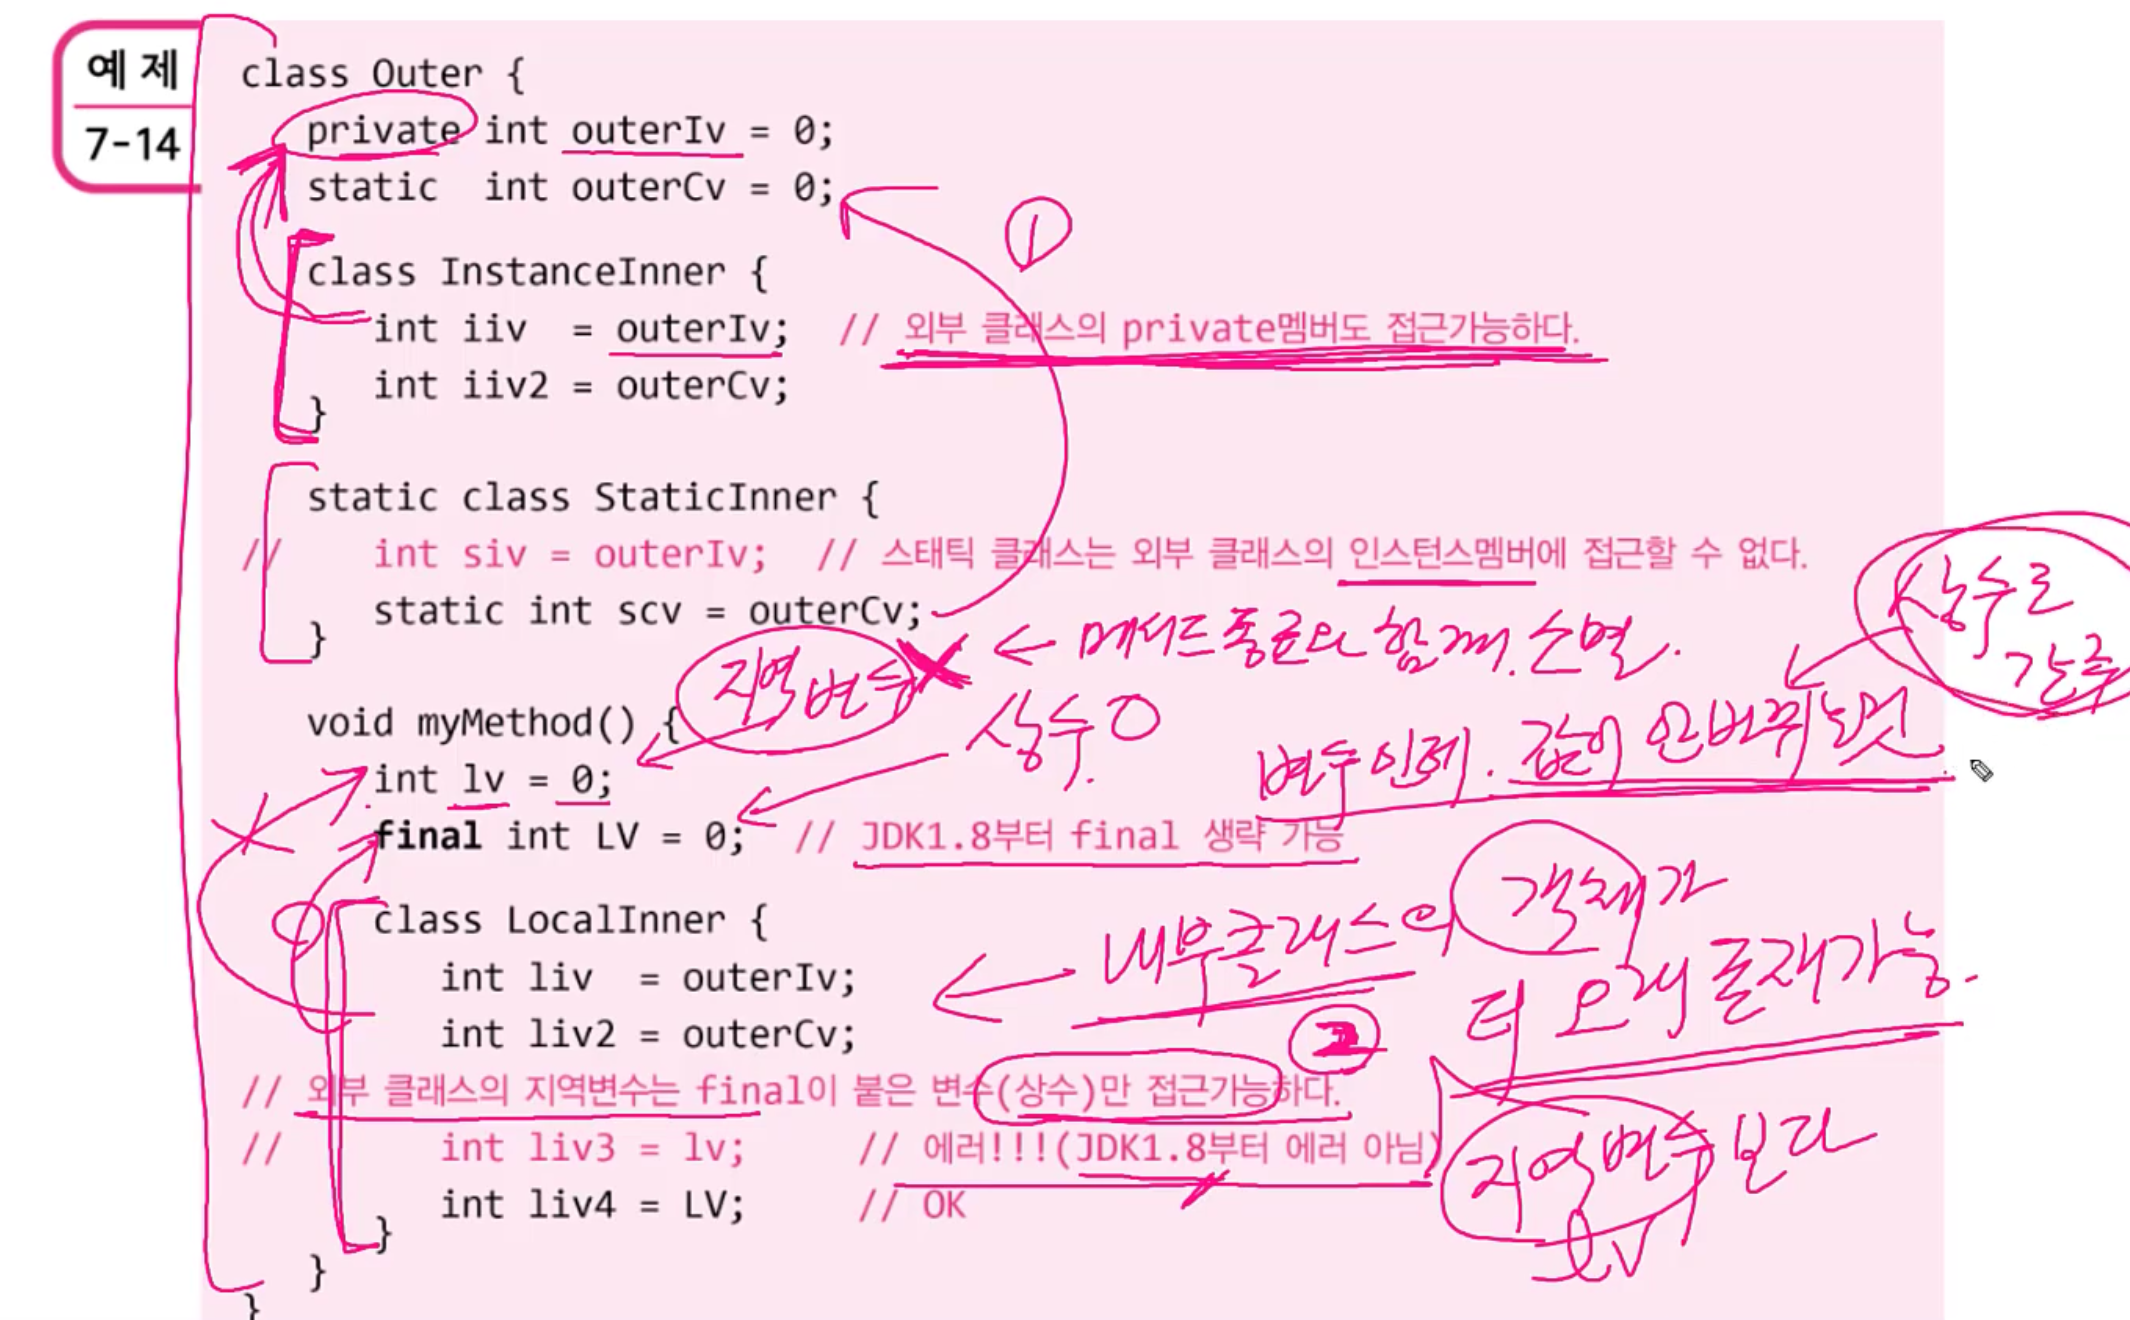 예 제
7-14
class Outer {
private int outerIv = 0;
static int outerCv = 0;
①
class InstanceInner {
int iiv = outerIv; // 외부 클래스의 private멤버도 접근가능하다.
int iiv2 = outerCv;
}
static class StaticInner {
// int siv = outerIv; // 스태틱 클래스는 외부 클래스의 인스턴스멤버에 접근할 수 없다.
static int scv = outerCv;
}
상수로
간주
지역변수 ← 메서드종료와 함께 소멸.
상수
변수인데. 값이 안바뀌는것
void myMethod() {
int lv = 0;
final int LV = 0; // JDK1.8부터 final 생략 가능
class LocalInner {
내부클래스의 객체가
int liv = outerIv;
더 오래 존재가능.
int liv2 = outerCv;
②
// 외부 클래스의 지역변수는 final이 붙은 변수(상수)만 접근가능하다.
지역변수보다
lv
// int liv3 = lv; // 에러!!!(JDK1.8부터 에러 아님)
int liv4 = LV; // OK
}
}
}